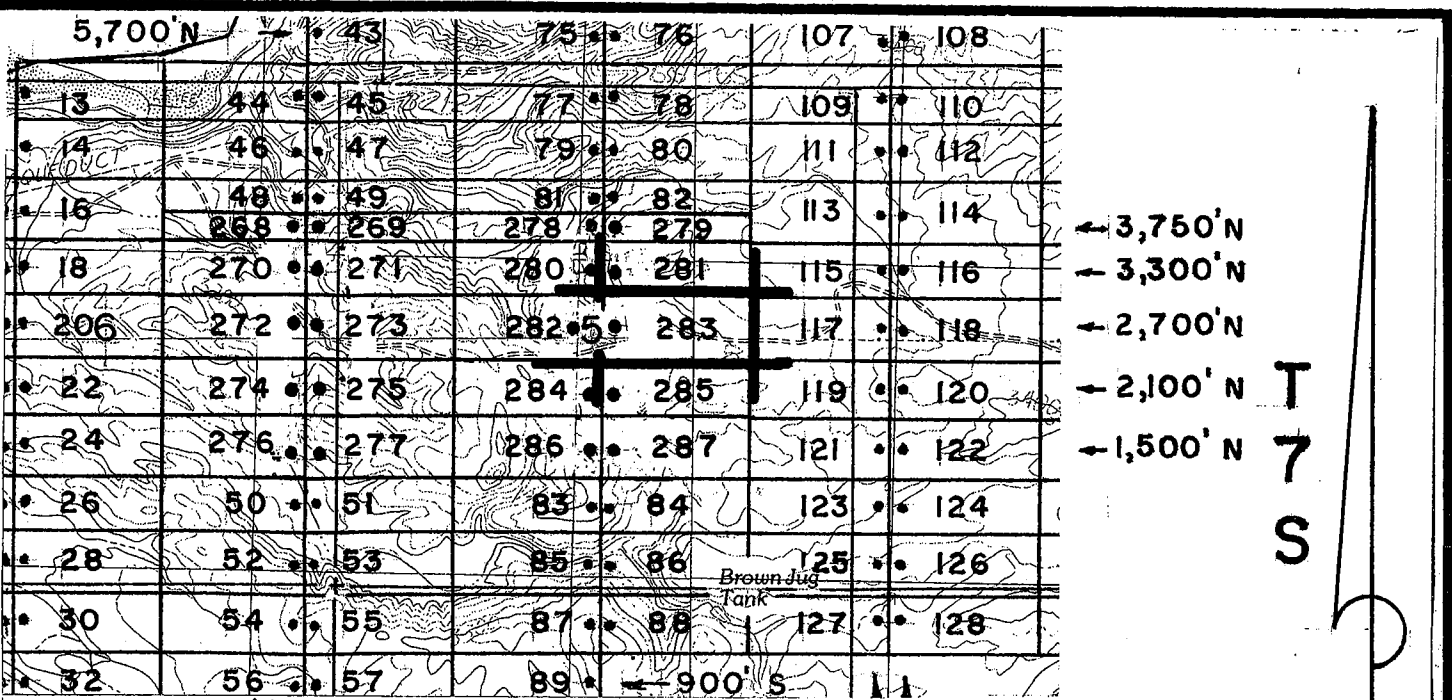 5,700'N 43 75 76 107 108
13 44 45 77 78 109 110
14 46 47 79 80 111 112
16 48 49 81 82 113 114
268 269 278 279 3,750'N
18 270 271 280 281 115 116 3,300'N
206 272 273 282 5 283 117 118 2,700'N
22 274 275 284 285 119 120 2,100' N
T
24 276 277 286 287 121 122 1,500' N
7
26 50 51 83 84 123 124
S
28 52 53 85 86 125 126
Brown Jug
Tank
30 54 55 87 88 127 128
32 56 57 89 900' S